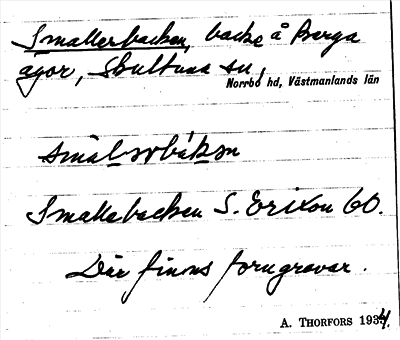 Smallerbacken, backe å Berga
ägor, Skultuna sn,
Norrbo hd, Västmanlands län
smalorbákkan
Smallabacken S. Erixon 60.
Där finns forngravar.
A. THORFORS 1934.